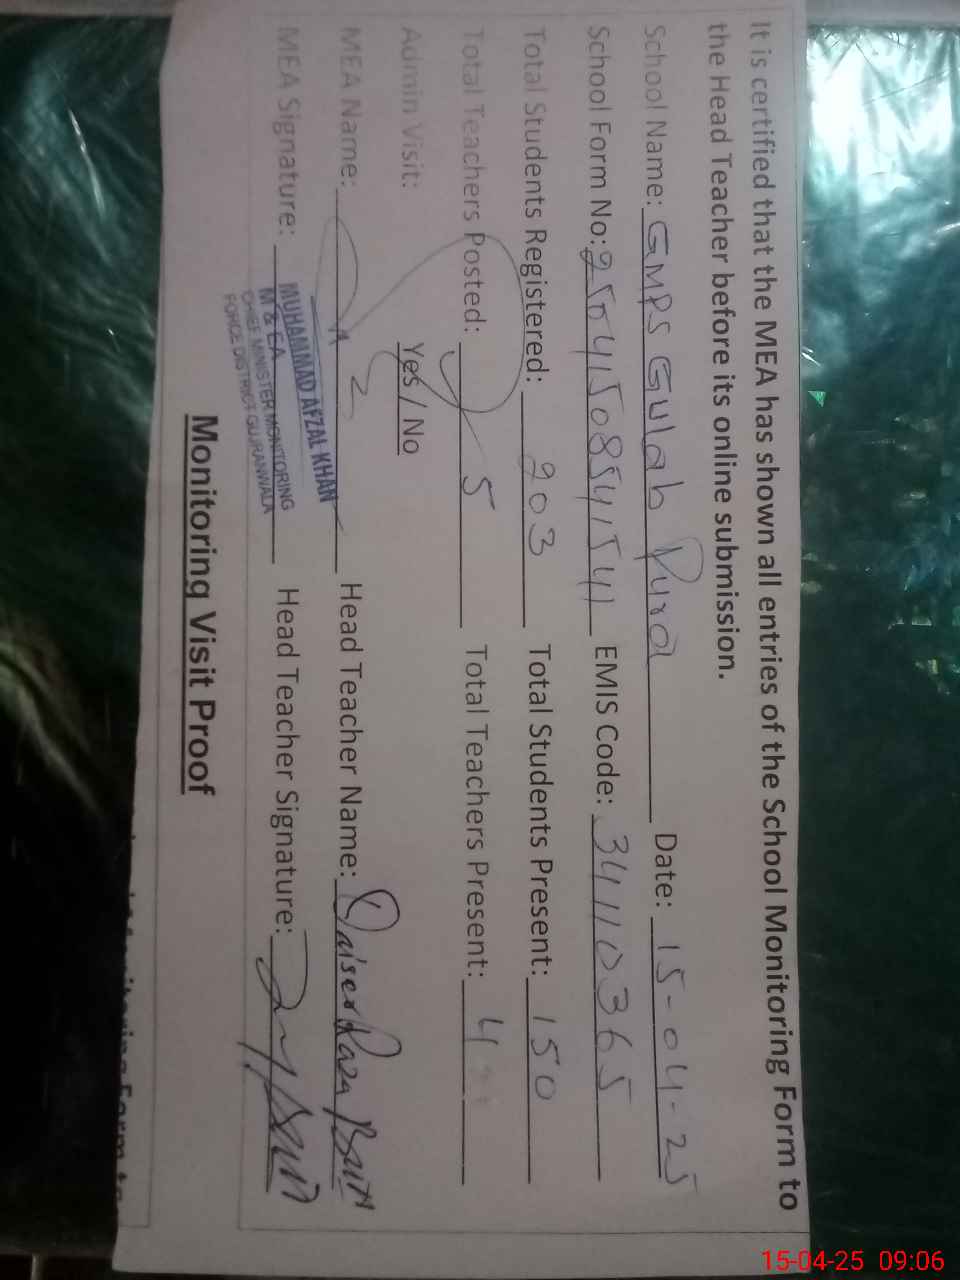 It is certified that the MEA has shown all entries of the School Monitoring Form to
the Head Teacher before its online submission.
School Name: GMPS Gulab Pura Date: 15-04-25
School Form No: EMIS Code: 34110365
Total Students Registered: 203 Total Students Present: 150
Total Teachers Posted: 5 Total Teachers Present: 4
Admin Visit: Yes / No
MEA Name: Head Teacher Name: Qaiser Raza Butt
MEA Signature: Head Teacher Signature:
MUHAMMAD AFZAL KHAN
M & EA
CHIEF MINISTER MONITORING
FORCE DISTRICT GUJRANWALA
Monitoring Visit Proof
15-04-25 09:06